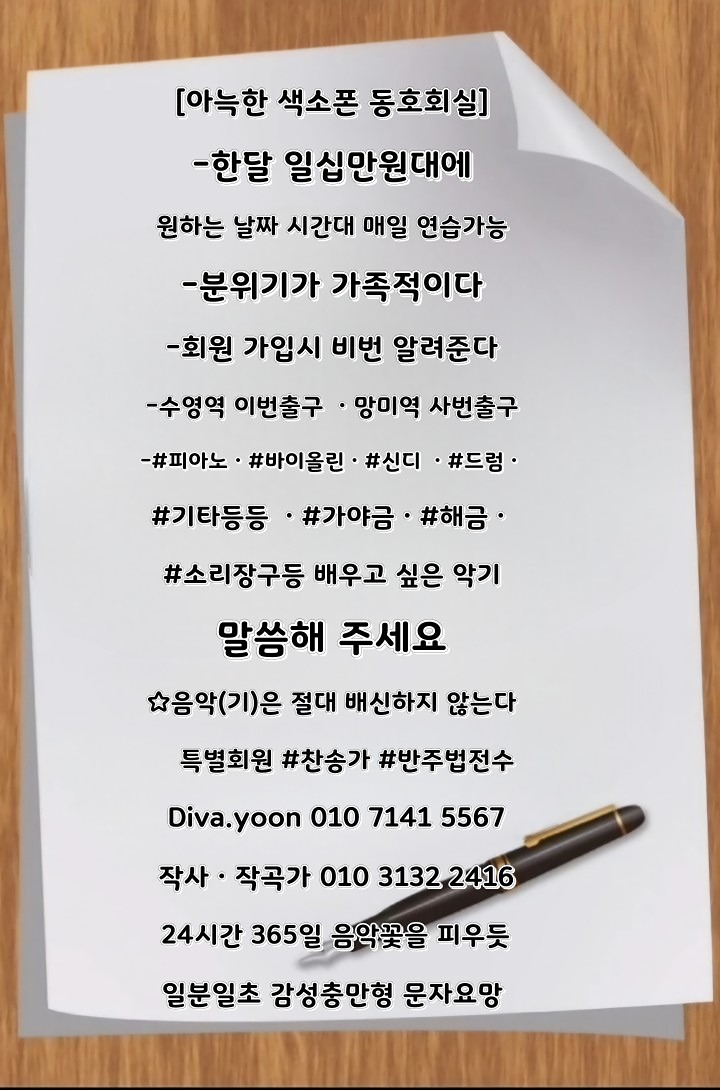 [아늑한 색소폰 동호회실]
-한달 일십만원대에
원하는 날짜 시간대 매일 연습가능
-분위기가 가족적이다
-회원 가입시 비번 알려준다
-수영역 이번출구 · 망미역 사번출구
-#피아노 · #바이올린 · #신디 · #드럼 ·
#기타등등 · #가야금 · #해금 ·
#소리장구등 배우고 싶은 악기
말씀해 주세요
☆음악(기)은 절대 배신하지 않는다
특별회원 #찬송가 #반주법전수
Diva.yoon 010 7141 5567
작사 · 작곡가 010 3132 2416
24시간 365일 음악꽃을 피우듯
일분일초 감성충만형 문자요망